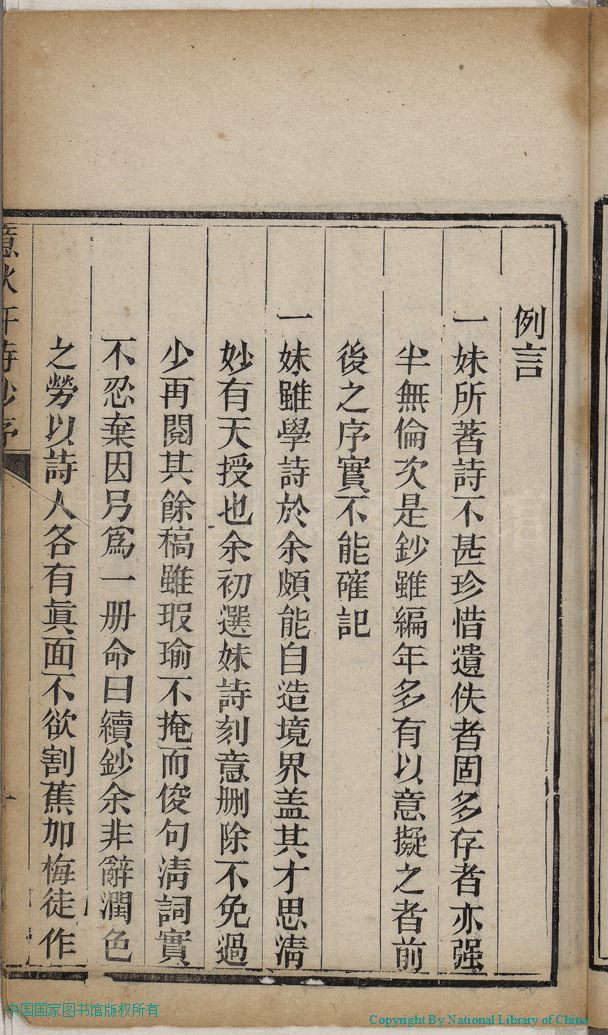 例言
一妹所著詩不甚珍惜遺佚者固多存者亦强
半無倫次是鈔雖編年多有以意擬之者前
後之序實不能確記
一妹雖學詩於余頗能自造境界盖其才思清
妙有天授也余初選妹詩刻意删除不免過
少再閱其餘稿雖瑕瑜不掩而俊句清詞實
不忍棄因另爲一册命曰續鈔余非辭潤色
之勞以詩人各有眞面不欲割蕉加梅徒作
意秋軒詩鈔序
中国国家图书馆版权所有
Copyright By National Library of China